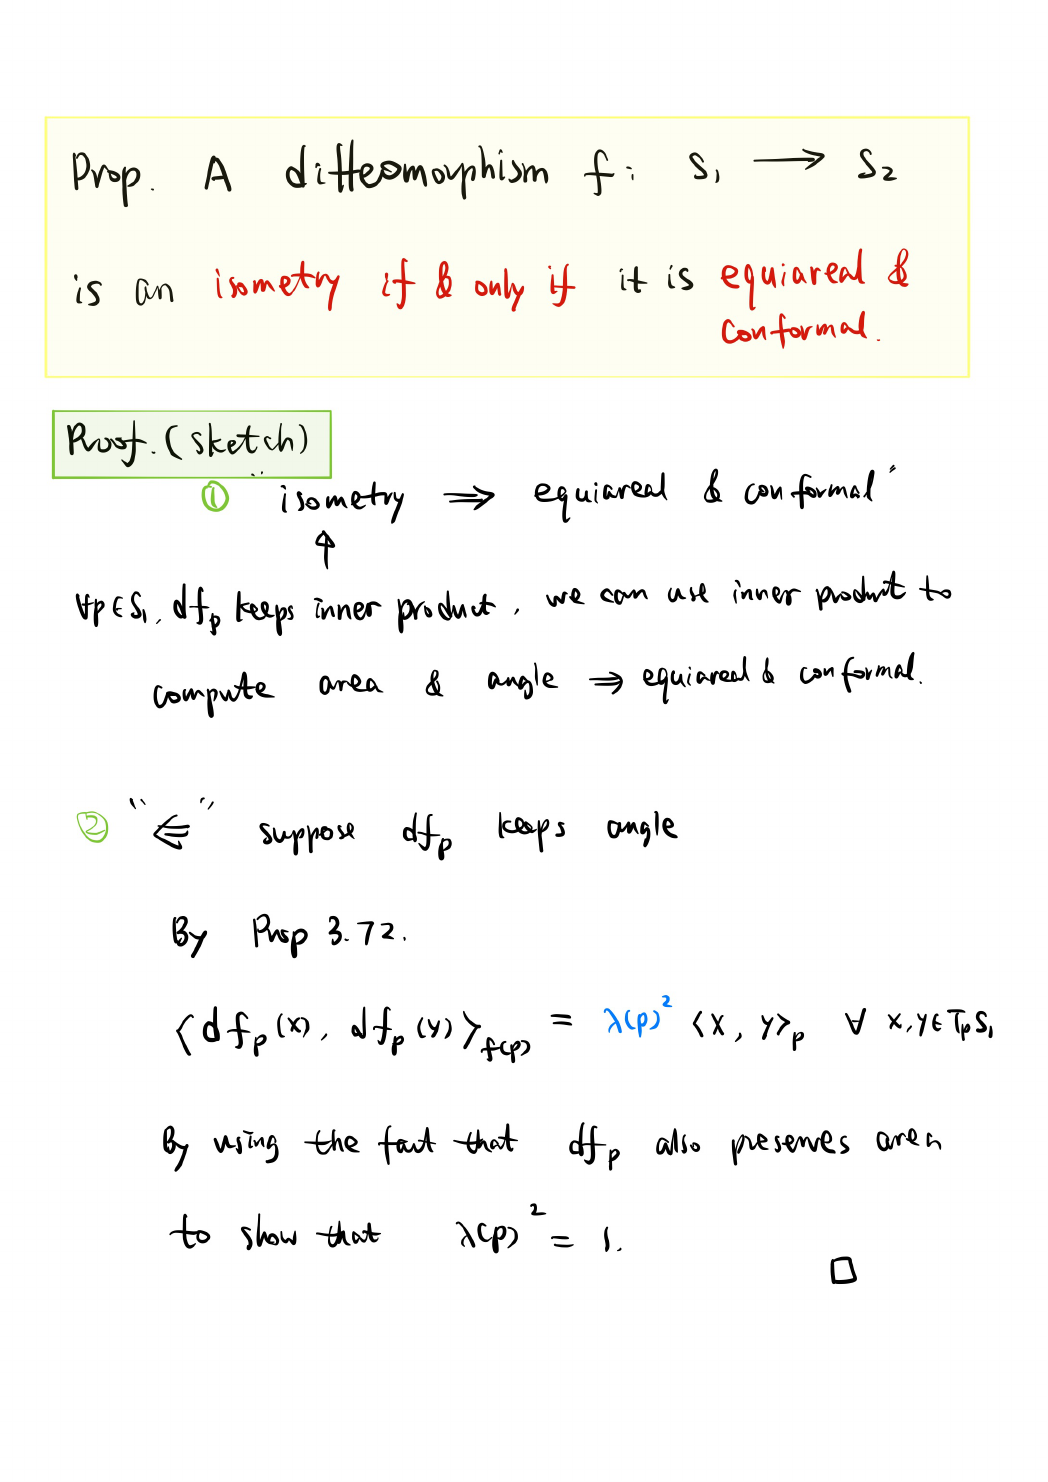 Prop. A diffeomorphism f: S₁ ⟶ S₂
is an isometry if & only if it is equiareal &
conformal.
Proof. (sketch)
① "isometry ⟹ equiareal & conformal"
↑
∀p∈S₁, df_p keeps inner product, we can use inner product to
compute area & angle ⇒ equiareal & conformal.
② "⇐" suppose df_p keeps angle
By Prop 3.72.
⟨df_p(x), df_p(y)⟩_{f(p)} = λ(p)² ⟨x, y⟩_p ∀ x,y∈T_pS₁
By using the fact that df_p also preserves area
to show that λ(p)² = 1.
□